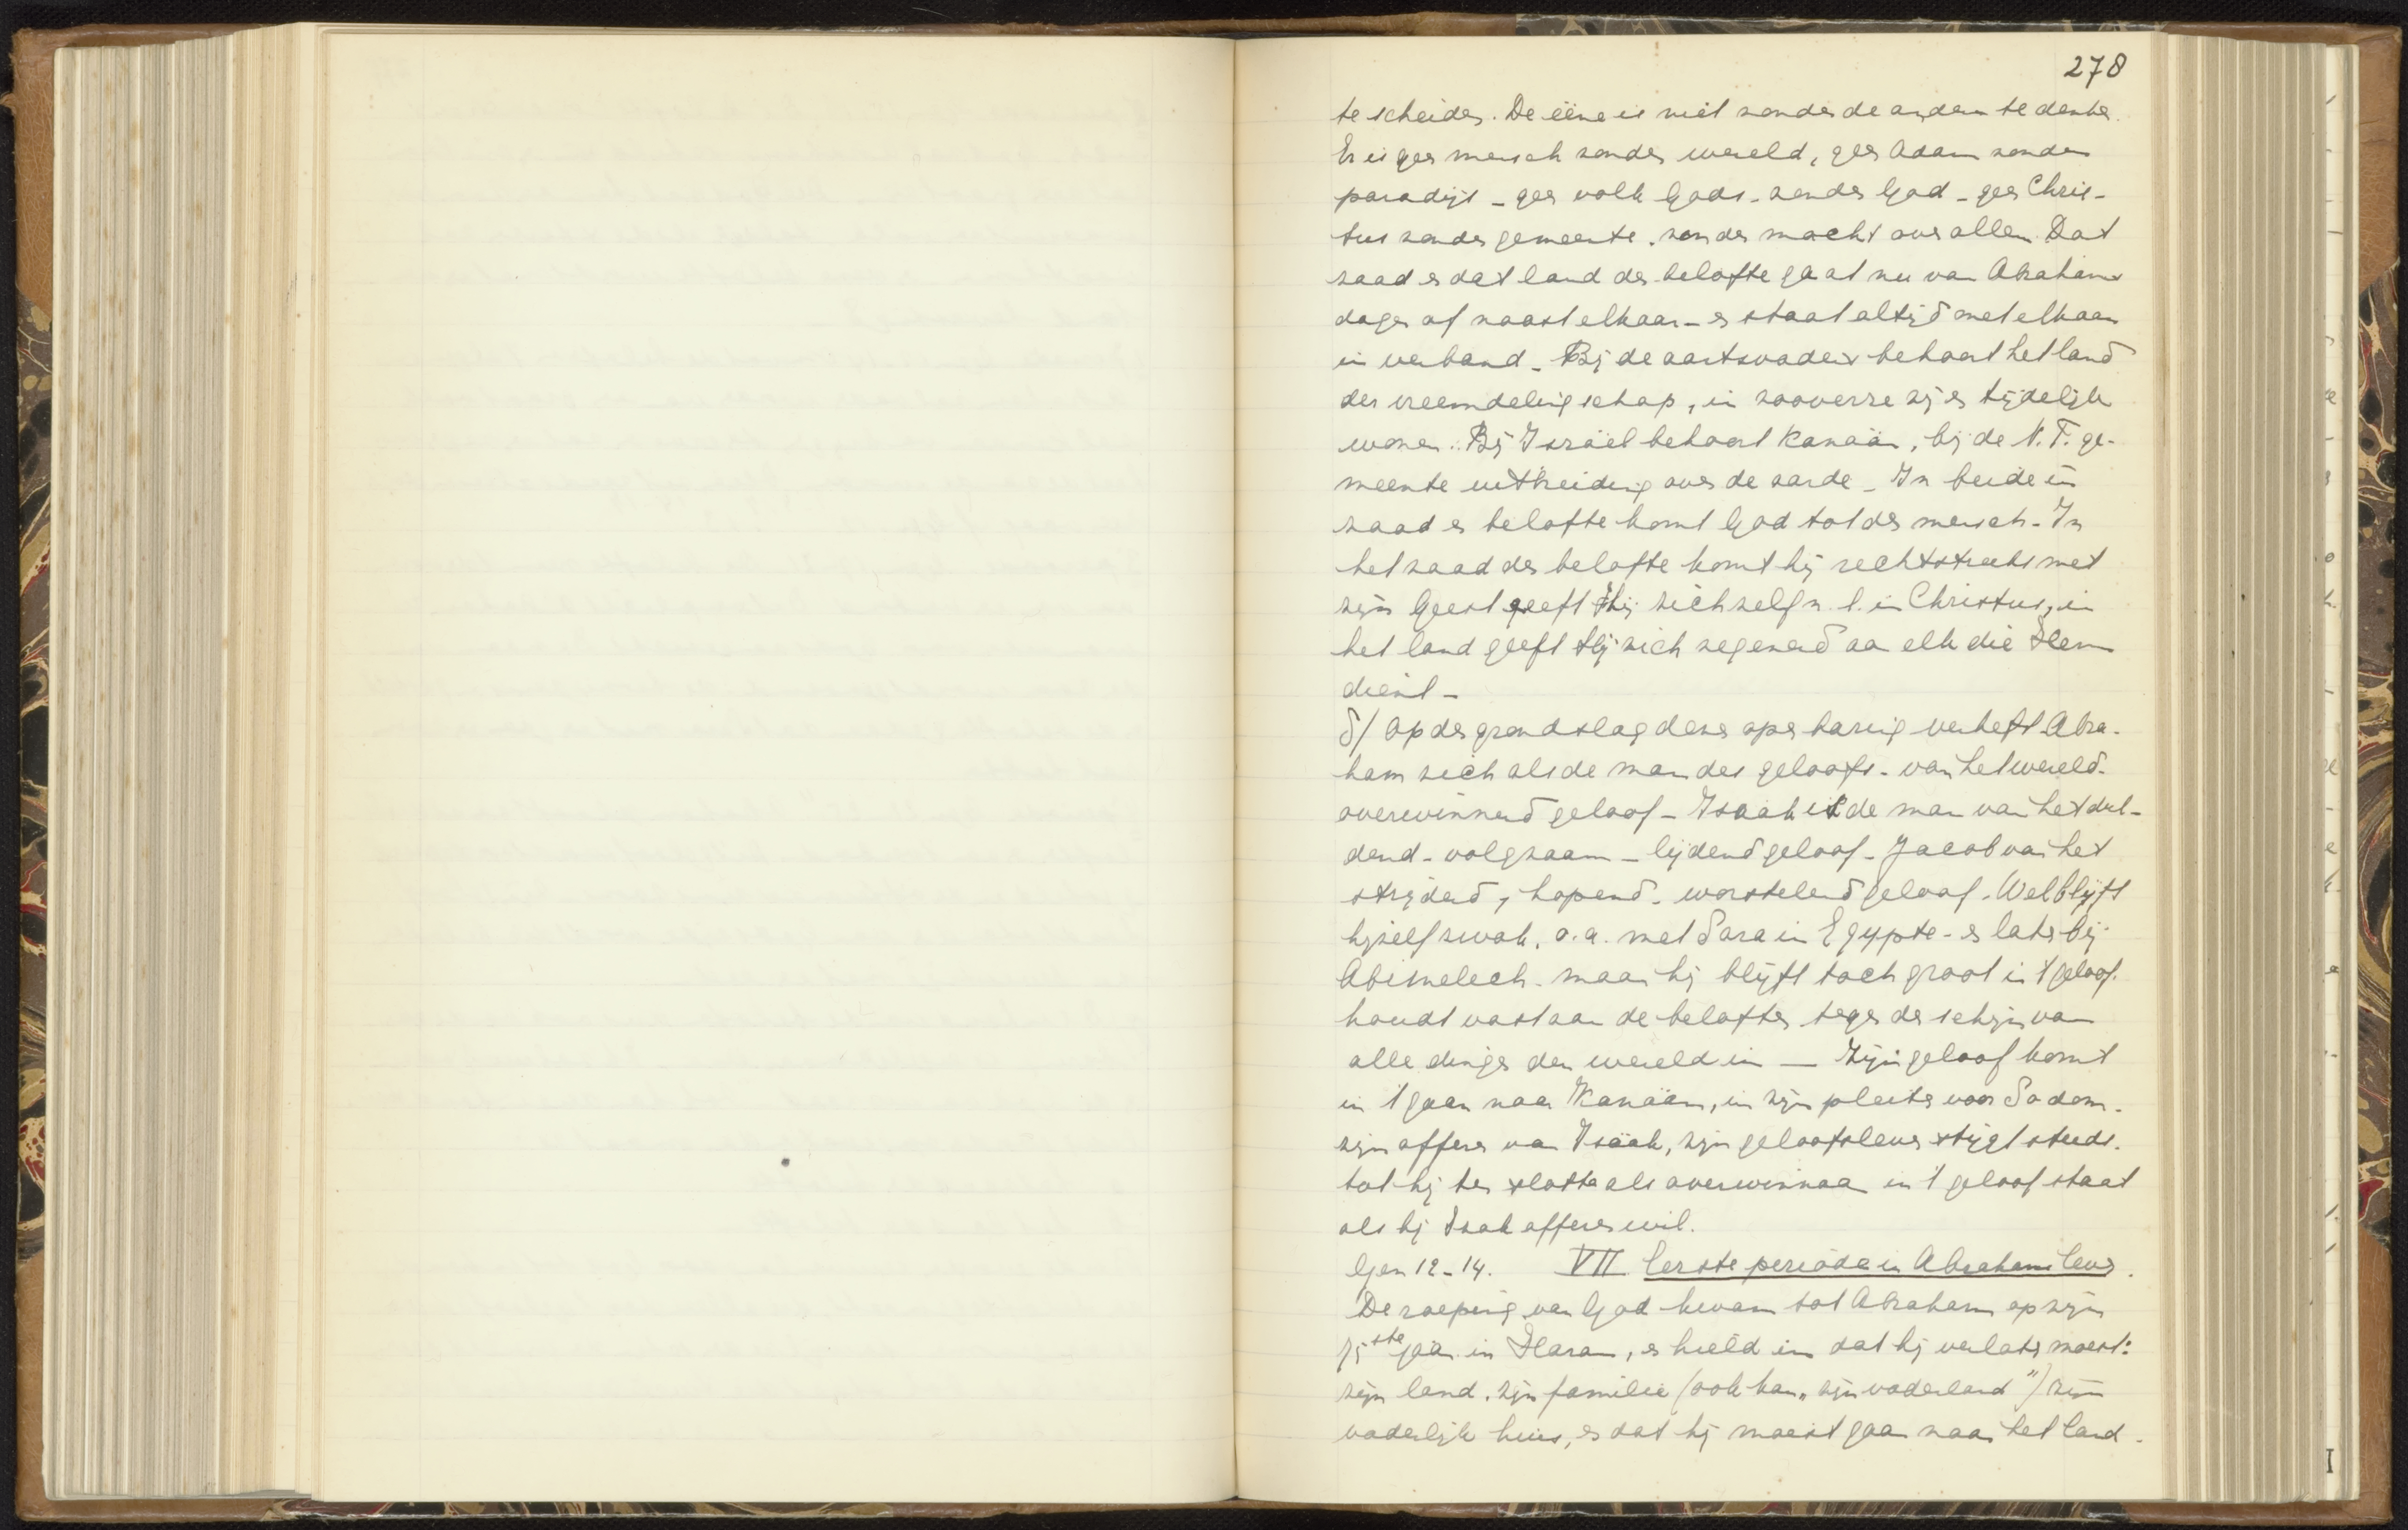 278
te scheiden. De ééne is niet zonder de andere te denken.
Er is geen mensch zonder wereld, geen Adam zonder
paradijs - geen volk Gods - zonder God - geen Chris-
tus zonder gemeente, zonder macht over allen. Dat
zaad en dat land der belofte gaat nu van Abrahams
dagen af naast elkaar - en staat altijd met elkaar
in verband - Bij de aartsvaders behoort het land
der vreemdelingschap, in zooverre zij er tijdelijk
wonen. Bij Israël behoort Kanaän, bij de N.T. ge-
meente uitbreiding over de aarde - In beide in
zaad en belofte komt God tot den mensch - In
het zaad der belofte komt hij rechtstreeks met
zijn Geest geeft Hij zichzelf n.l. in Christus, in
het land geeft Hij zich zegenend aan elk die Hem
dient -
δ/ Op den grondslag dezer openbaring verheft Abra-
ham zich als de man des geloofs - van het wereld-
overwinnend geloof - Isaäk is de man van het dul-
dend - volgzaam - lijdend geloof - Jacob van het
strijdend, hopend - worstelend geloof. Wel blijft
hijzelf zwak, o.a. met Sara in Egypte - en later bij
Abimelech - maar hij blijft toch groot in 't geloof.
houdt vast aan de beloften tegen den schijn van
alle dingen der wereld in — Zijn geloof komt
in 't gaan naar Kanaän, in zijn pleiten voor Sodom -
zijn offeren van Isaäk, zijn geloofsleven stijgt steeds.
tot hij ten slotte als overwinnaar in 't geloof staat
als hij Izak offeren wil.
Gen 12-14. VII Eerste periode in Abrahams leven.
De roeping van God kwam tot Abraham op zijn
75ste jaar in Haran, en hield in dat hij verlaten moest:
zijn land, zijn familie (ook kan „zijn vaderland") zijn
vaderlijk huis, en dat hij moest gaan naar het land -